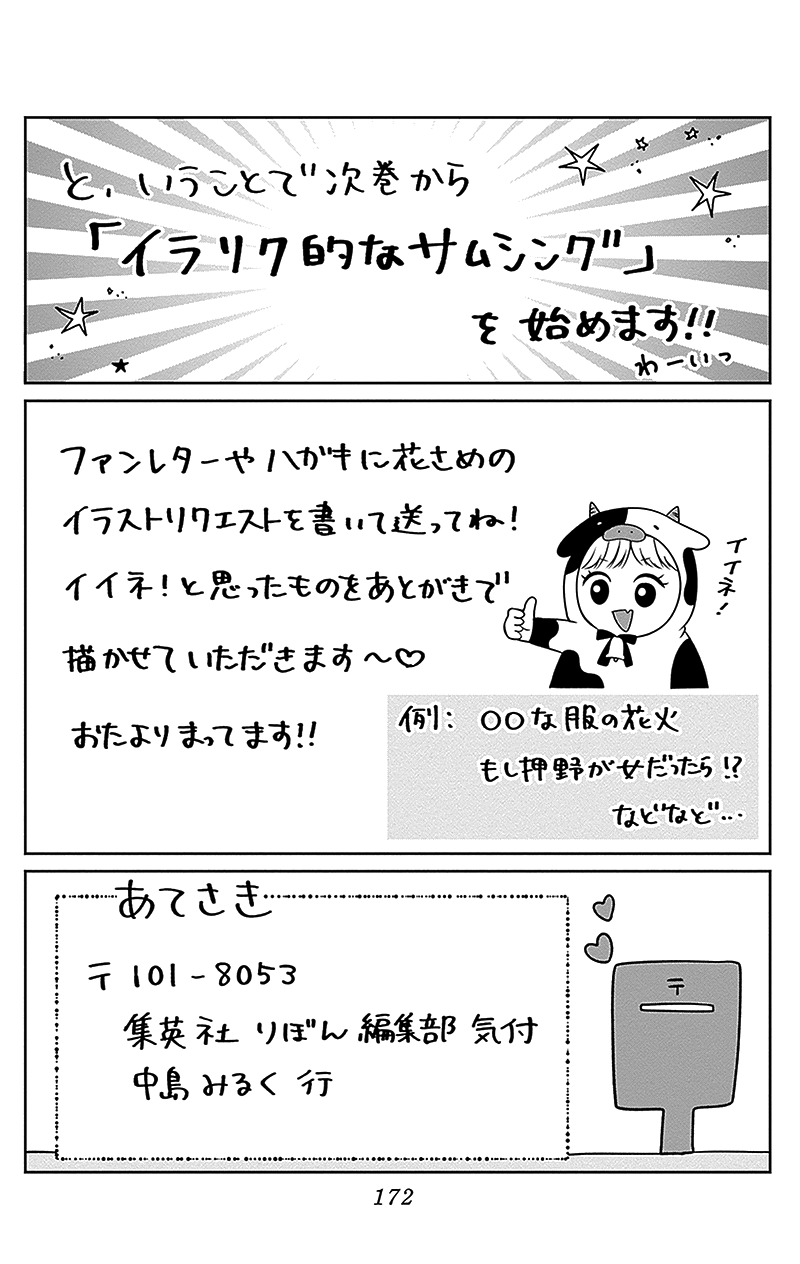 と、いうことで次巻から
「イラリク的なサムシング」
を始めます!!
わーいっ
ファンレターやハガキに花さめの
イラストリクエストを書いて送ってね!
イイネ!と思ったものをあとがきで
描かせていただきます〜♡
おたよりまってます!!
イイネ!
例: ○○な服の花火
もし押野が女だったら!?
などなど…
あてさき
〒101-8053
集英社 りぼん編集部 気付
中島みるく 行
〒
172